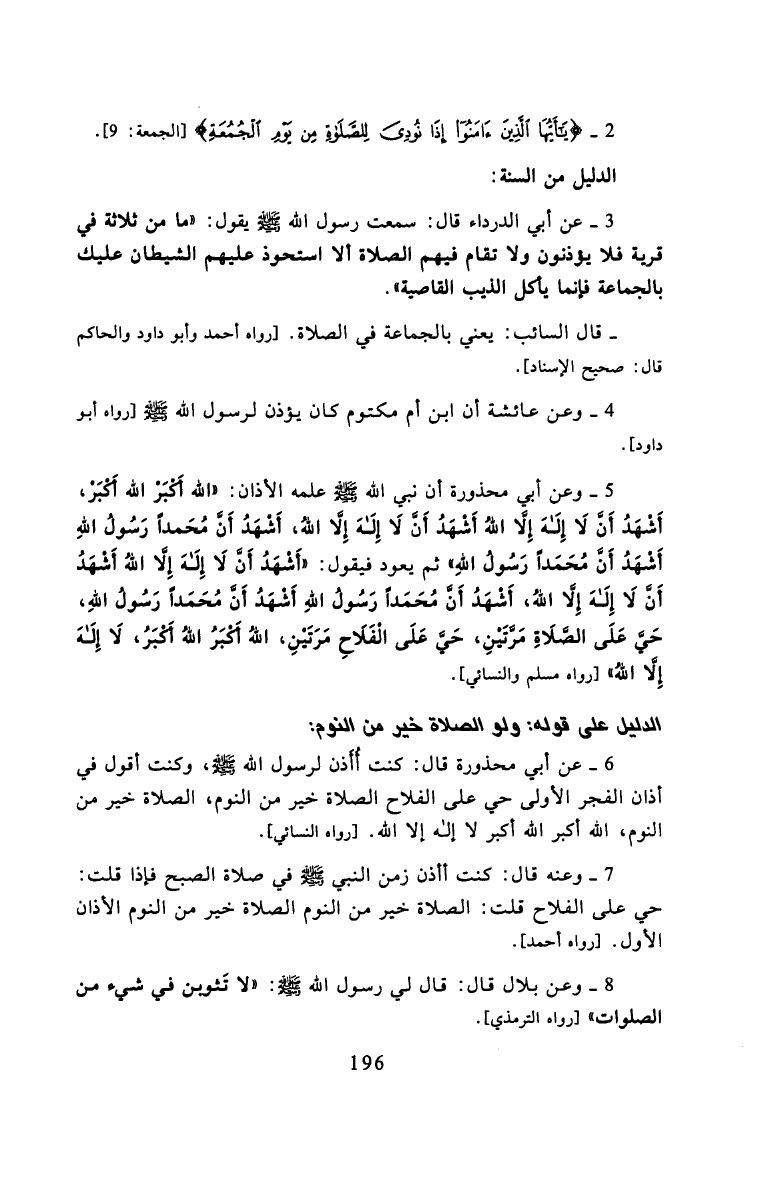 2 ـ ﴿يَٰٓأَيُّهَا ٱلَّذِينَ ءَامَنُوٓا۟ إِذَا نُودِىَ لِلصَّلَوٰةِ مِن يَوْمِ ٱلْجُمُعَةِ﴾ [الجمعة: 9].
الدليل من السنة:
3 ـ عن أبي الدرداء قال: سمعت رسول الله ﷺ يقول: «ما من ثلاثة في
قرية فلا يؤذنون ولا تقام فيهم الصلاة ألا استحوذ عليهم الشيطان عليك
بالجماعة فإنما يأكل الذيب القاصية».
ـ قال السائب: يعني بالجماعة في الصلاة. [رواه أحمد وأبو داود والحاكم
قال: صحيح الإسناد].
4 ـ وعن عائشة أن ابن أم مكتوم كان يؤذن لرسول الله ﷺ [رواه أبو
داود].
5 ـ وعن أبي محذورة أن نبي الله ﷺ علمه الأذان: «الله أَكْبَرْ الله أَكْبَرْ،
أَشْهَدُ أَنَّ لَا إِلَـٰهَ إِلَّا اللهُ أَشْهَدُ أَنَّ لَا إِلَـٰهَ إِلَّا اللهُ، أَشْهَدُ أَنَّ مُحَمَداً رَسُولُ اللهِ
أَشْهَدُ أَنَّ مُحَمَداً رَسُولُ اللهِ» ثم يعود فيقول: «أَشْهَدُ أَنَّ لَا إِلَـٰهَ إِلَّا اللهُ أَشْهَدُ
أَنَّ لَا إِلَـٰهَ إِلَّا اللهُ، أَشْهَدُ أَنَّ مُحَمَداً رَسُولُ اللهِ أَشْهَدُ أَنَّ مُحَمَداً رَسُولُ اللهِ،
حَيَّ عَلَى الصَّلَاةِ مَرَّتَيْنِ، حَيَّ عَلَى الْفَلَاحِ مَرَتَيْنِ، اللهُ أَكْبَرُ اللهُ أَكْبَرُ، لَا إِلَـٰهَ
إِلَّا اللهُ» [رواه مسلم والنسائي].
الدليل على قوله: ولو الصلاة خير من النوم:
6 ـ عن أبي محذورة قال: كنت أُأذن لرسول الله ﷺ، وكنت أقول في
أذان الفجر الأولى حي على الفلاح الصلاة خير من النوم، الصلاة خير من
النوم، الله أكبر الله أكبر لا إلٰه إلا الله. [رواه النسائي].
7 ـ وعنه قال: كنت أأذن زمن النبي ﷺ في صلاة الصبح فإذا قلت:
حي على الفلاح قلت: الصلاة خير من النوم الصلاة خير من النوم الأذان
الأول. [رواه أحمد].
8 ـ وعن بلال قال: قال لي رسول الله ﷺ: «لا تَثوبن في شيء من
الصلوات» [رواه الترمذي].
196